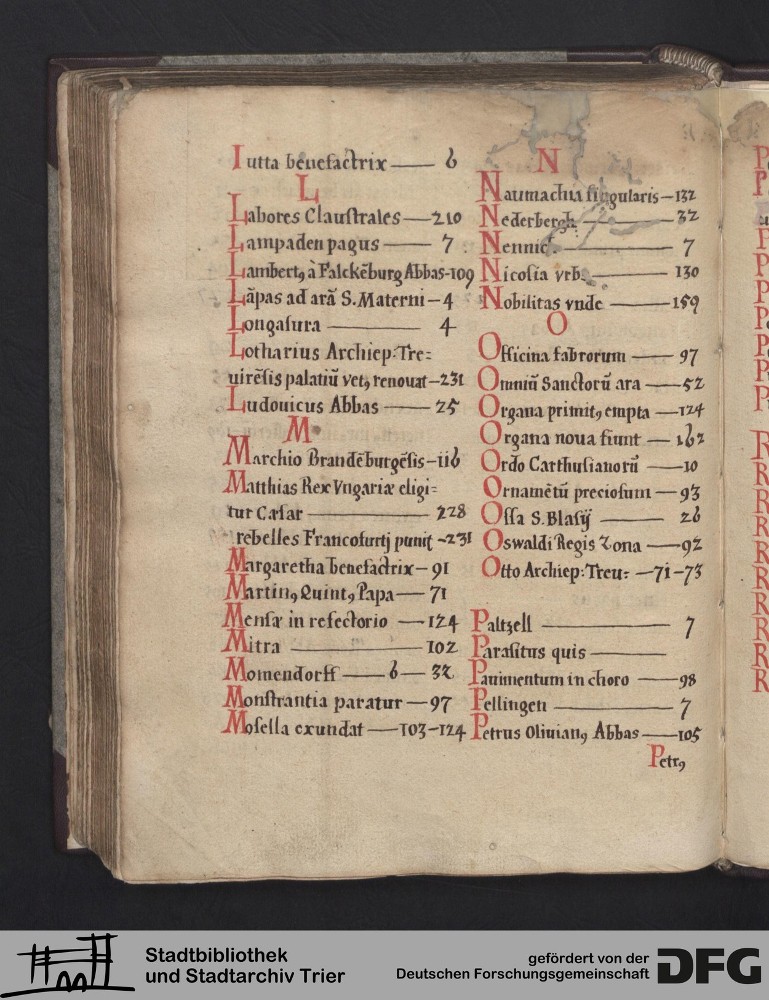 Iutta benefactrix — 6
L
Labores Claustrales — 210
Lampaden pagus — 7
Lambertꝯ à Falckēburg Abbas - 109
Lāpas ad arā S. Materni — 4
Longasura — 4
Lotharius Archiep: Tre=
uirēsis palatiū vetꝯ renouat — 231
Ludouicus Abbas — 25
M
Marchio Brandēburgēsis — 116
Matthias Rex Vngariæ eligi=
tur Cæsar — 228
rebelles Francofurtj punit — 231
Margaretha benefactrix — 91
Martinꝯ Quintꝯ Papa — 71
Mensæ in refectorio — 124
Mitra — 102
Momendorff — 6 — 32
Monstrantia paratur — 97
Mosella exundat — 103 - 124
N
Naumachia singularis — 132
Nederbergh — 32
Nennic — 7
Nicosia vrbs — 130
Nobilitas vnde — 159
O
Officina fabrorum — 97
Omniū Sanctorū ara — 52
Organa primitꝯ empta — 124
Organa noua fiunt — 162
Ordo Carthusianorū — 10
Ornamētū preciosum — 93
Ossa S. Blasÿ — 26
Oswaldi Regis Zona — 92
Otto Archiep: Treu: — 71 - 73
Paltzell — 7
Parasitus quis —
Pauimentum in choro — 98
Pellingen — 7
Petrus Oliuianꝯ Abbas — 105
Petrꝯ
Stadtbibliothek
und Stadtarchiv Trier
gefördert von der
Deutschen Forschungsgemeinschaft
DFG